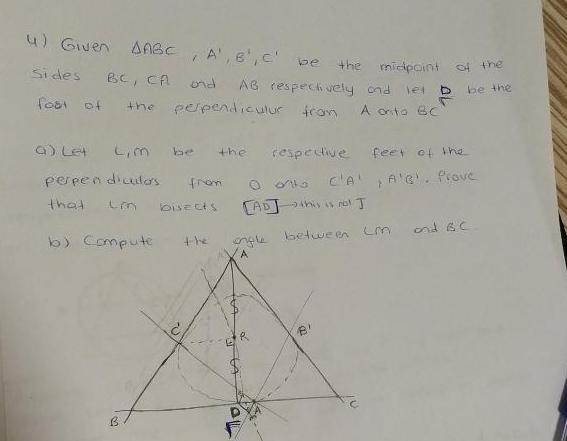 4) Given ΔABC, A', B', C' be the midpoint of the
sides BC, CA and AB respectively and let D be the
F
foot of the perpendicular from A onto BC
a) Let L, m be the respective feet of the
perpendiculars from O onto C'A', A'B'. Prove
that Lm bisects [AD] → this is not J
b) Compute the angle between Lm and BC.
A
C' B'
R
D A'
B C
F